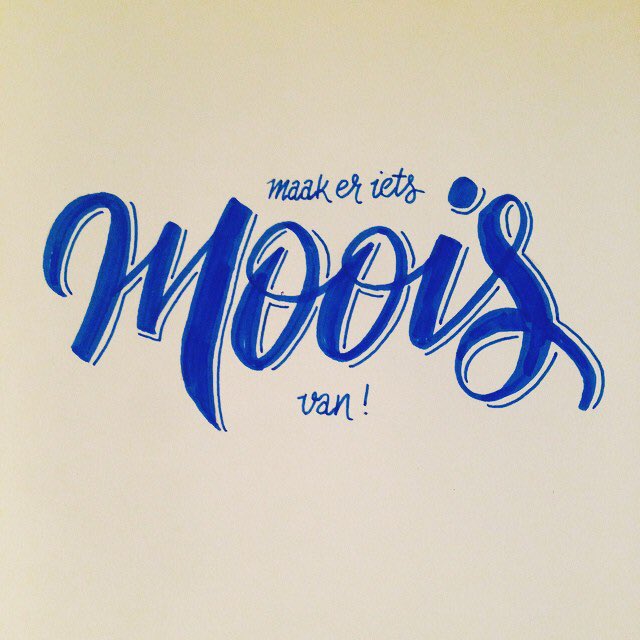 maak er iets
Moois
van!